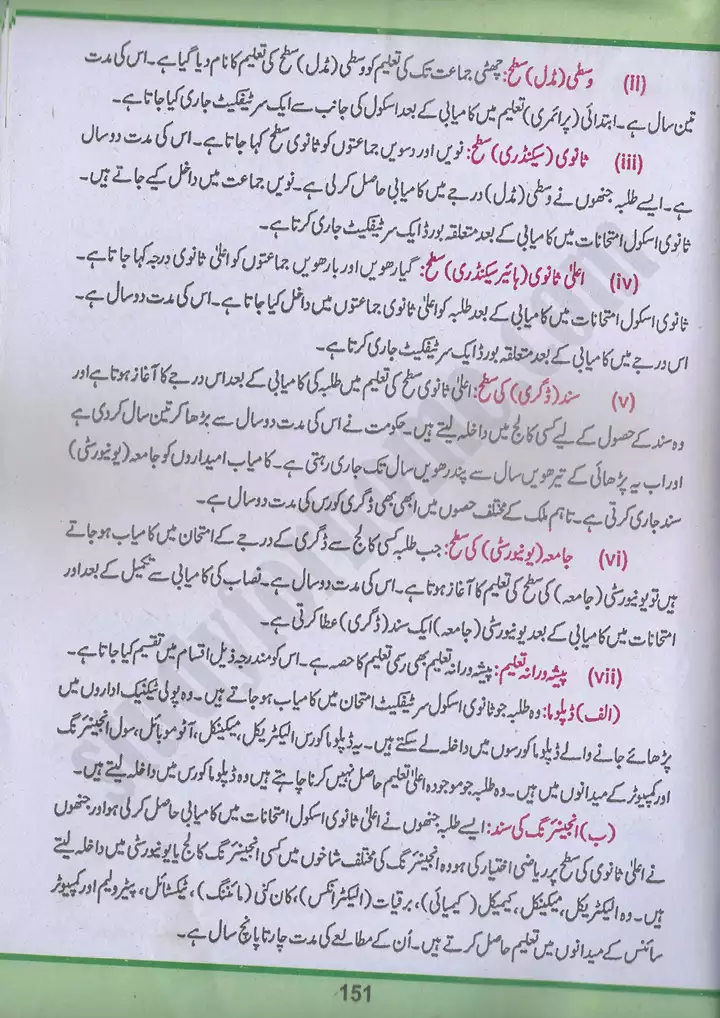 (ii) وسطی (مڈل) سطح: چھٹی جماعت تک کی تعلیم کو وسطی (مڈل) سطح کی تعلیم کا نام دیا گیا ہے۔ اس کی مدت
تین سال ہے۔ ابتدائی (پرائمری) تعلیم میں کامیابی کے بعد اسکول کی جانب سے ایک سرٹیفکیٹ جاری کیا جاتا ہے۔
(iii) ثانوی (سیکنڈری) سطح: نویں اور دسویں جماعتوں کو ثانوی سطح کہا جاتا ہے۔ اس کی مدت دو سال
ہے۔ ایسے طلبہ جنھوں نے وسطی (مڈل) درجے میں کامیابی حاصل کرلی ہے۔ نویں جماعت میں داخل کیے جاتے ہیں۔
ثانوی اسکول امتحانات میں کامیابی کے بعد متعلقہ بورڈ ایک سرٹیفکیٹ جاری کرتا ہے۔
(iv) اعلیٰ ثانوی (ہائیر سیکنڈری) سطح: گیارھویں اور بارھویں جماعتوں کو اعلیٰ ثانوی درجہ کہا جاتا ہے۔
ثانوی اسکول امتحانات میں کامیابی کے بعد طلبہ کو اعلیٰ ثانوی جماعتوں میں داخل کیا جاتا ہے۔ اس کی مدت دو سال ہے۔
اس درجے میں کامیابی کے بعد متعلقہ بورڈ ایک سرٹیفکیٹ جاری کرتا ہے۔
(v) سند (ڈگری) کی سطح: اعلیٰ ثانوی سطح کی تعلیم میں طلبہ کی کامیابی کے بعد اس درجے کا آغاز ہوتا ہے اور
وہ سند کے حصول کے لیے کسی کالج میں داخلہ لیتے ہیں۔ حکومت نے اس کی مدت دو سال سے بڑھا کر تین سال کردی ہے
اور اب یہ پڑھائی کے تیرھویں سال سے پندرھویں سال تک جاری رہتی ہے۔ کامیاب امیدواروں کو جامعہ (یونیورسٹی)
سند جاری کرتی ہے۔ تاہم ملک کے مختلف حصوں میں ابھی بھی ڈگری کورس کی مدت دو سال ہے۔
(vi) جامعہ (یونیورسٹی) کی سطح: جب طلبہ کسی کالج سے ڈگری کے درجے کے امتحان میں کامیاب ہوجاتے
ہیں تو یونیورسٹی (جامعہ) کی سطح کی تعلیم کا آغاز ہوتا ہے۔ اس کی مدت دو سال ہے۔ نصاب کی کامیابی سے تکمیل کے بعد اور
امتحانات میں کامیابی کے بعد یونیورسٹی (جامعہ) ایک سند (ڈگری) عطا کرتی ہے۔
(vii) پیشہ ورانہ تعلیم: پیشہ ورانہ تعلیم بھی رسمی تعلیم کا حصہ ہے۔ اس کو مندرجہ ذیل اقسام میں تقسیم کیا جاتا ہے۔
(الف) ڈپلوما: وہ طلبہ جو ثانوی اسکول سرٹیفکیٹ امتحان میں کامیاب ہوجاتے ہیں۔ وہ پولی ٹیکنیک اداروں میں
پڑھائے جانے والے ڈپلوما کورسوں میں داخلہ لے سکتے ہیں۔ یہ ڈپلوما کورس الیکٹریکل، میکینکل، آٹو موبائل، سول انجینئرنگ
اور کمپیوٹر کے میدانوں میں ہیں۔ وہ طلبہ جو موجودہ اعلیٰ تعلیم حاصل نہیں کرنا چاہتے ہیں وہ ڈپلوما کورس میں داخلہ لیتے ہیں۔
(ب) انجینئرنگ کی سند: ایسے طلبہ جنھوں نے اعلیٰ ثانوی اسکول امتحانات میں کامیابی حاصل کرلی ہو اور جنھوں
نے اعلیٰ ثانوی کی سطح پر ریاضی اختیار کی ہو وہ انجینئرنگ کی مختلف شاخوں میں کسی انجینئرنگ کالج یا یونیورسٹی میں داخلہ لیتے
ہیں۔ وہ الیکٹریکل، میکینکل، کیمیکل (کیمیائی)، برقیات (الیکٹرانکس)، کان کنی (مائننگ)، ٹیکسٹائل، پیٹرولیم اور کمپیوٹر
سائنس کے میدانوں میں تعلیم حاصل کرتے ہیں۔ اُن کے مطالعے کی مدت چار تا پانچ سال ہے۔
151